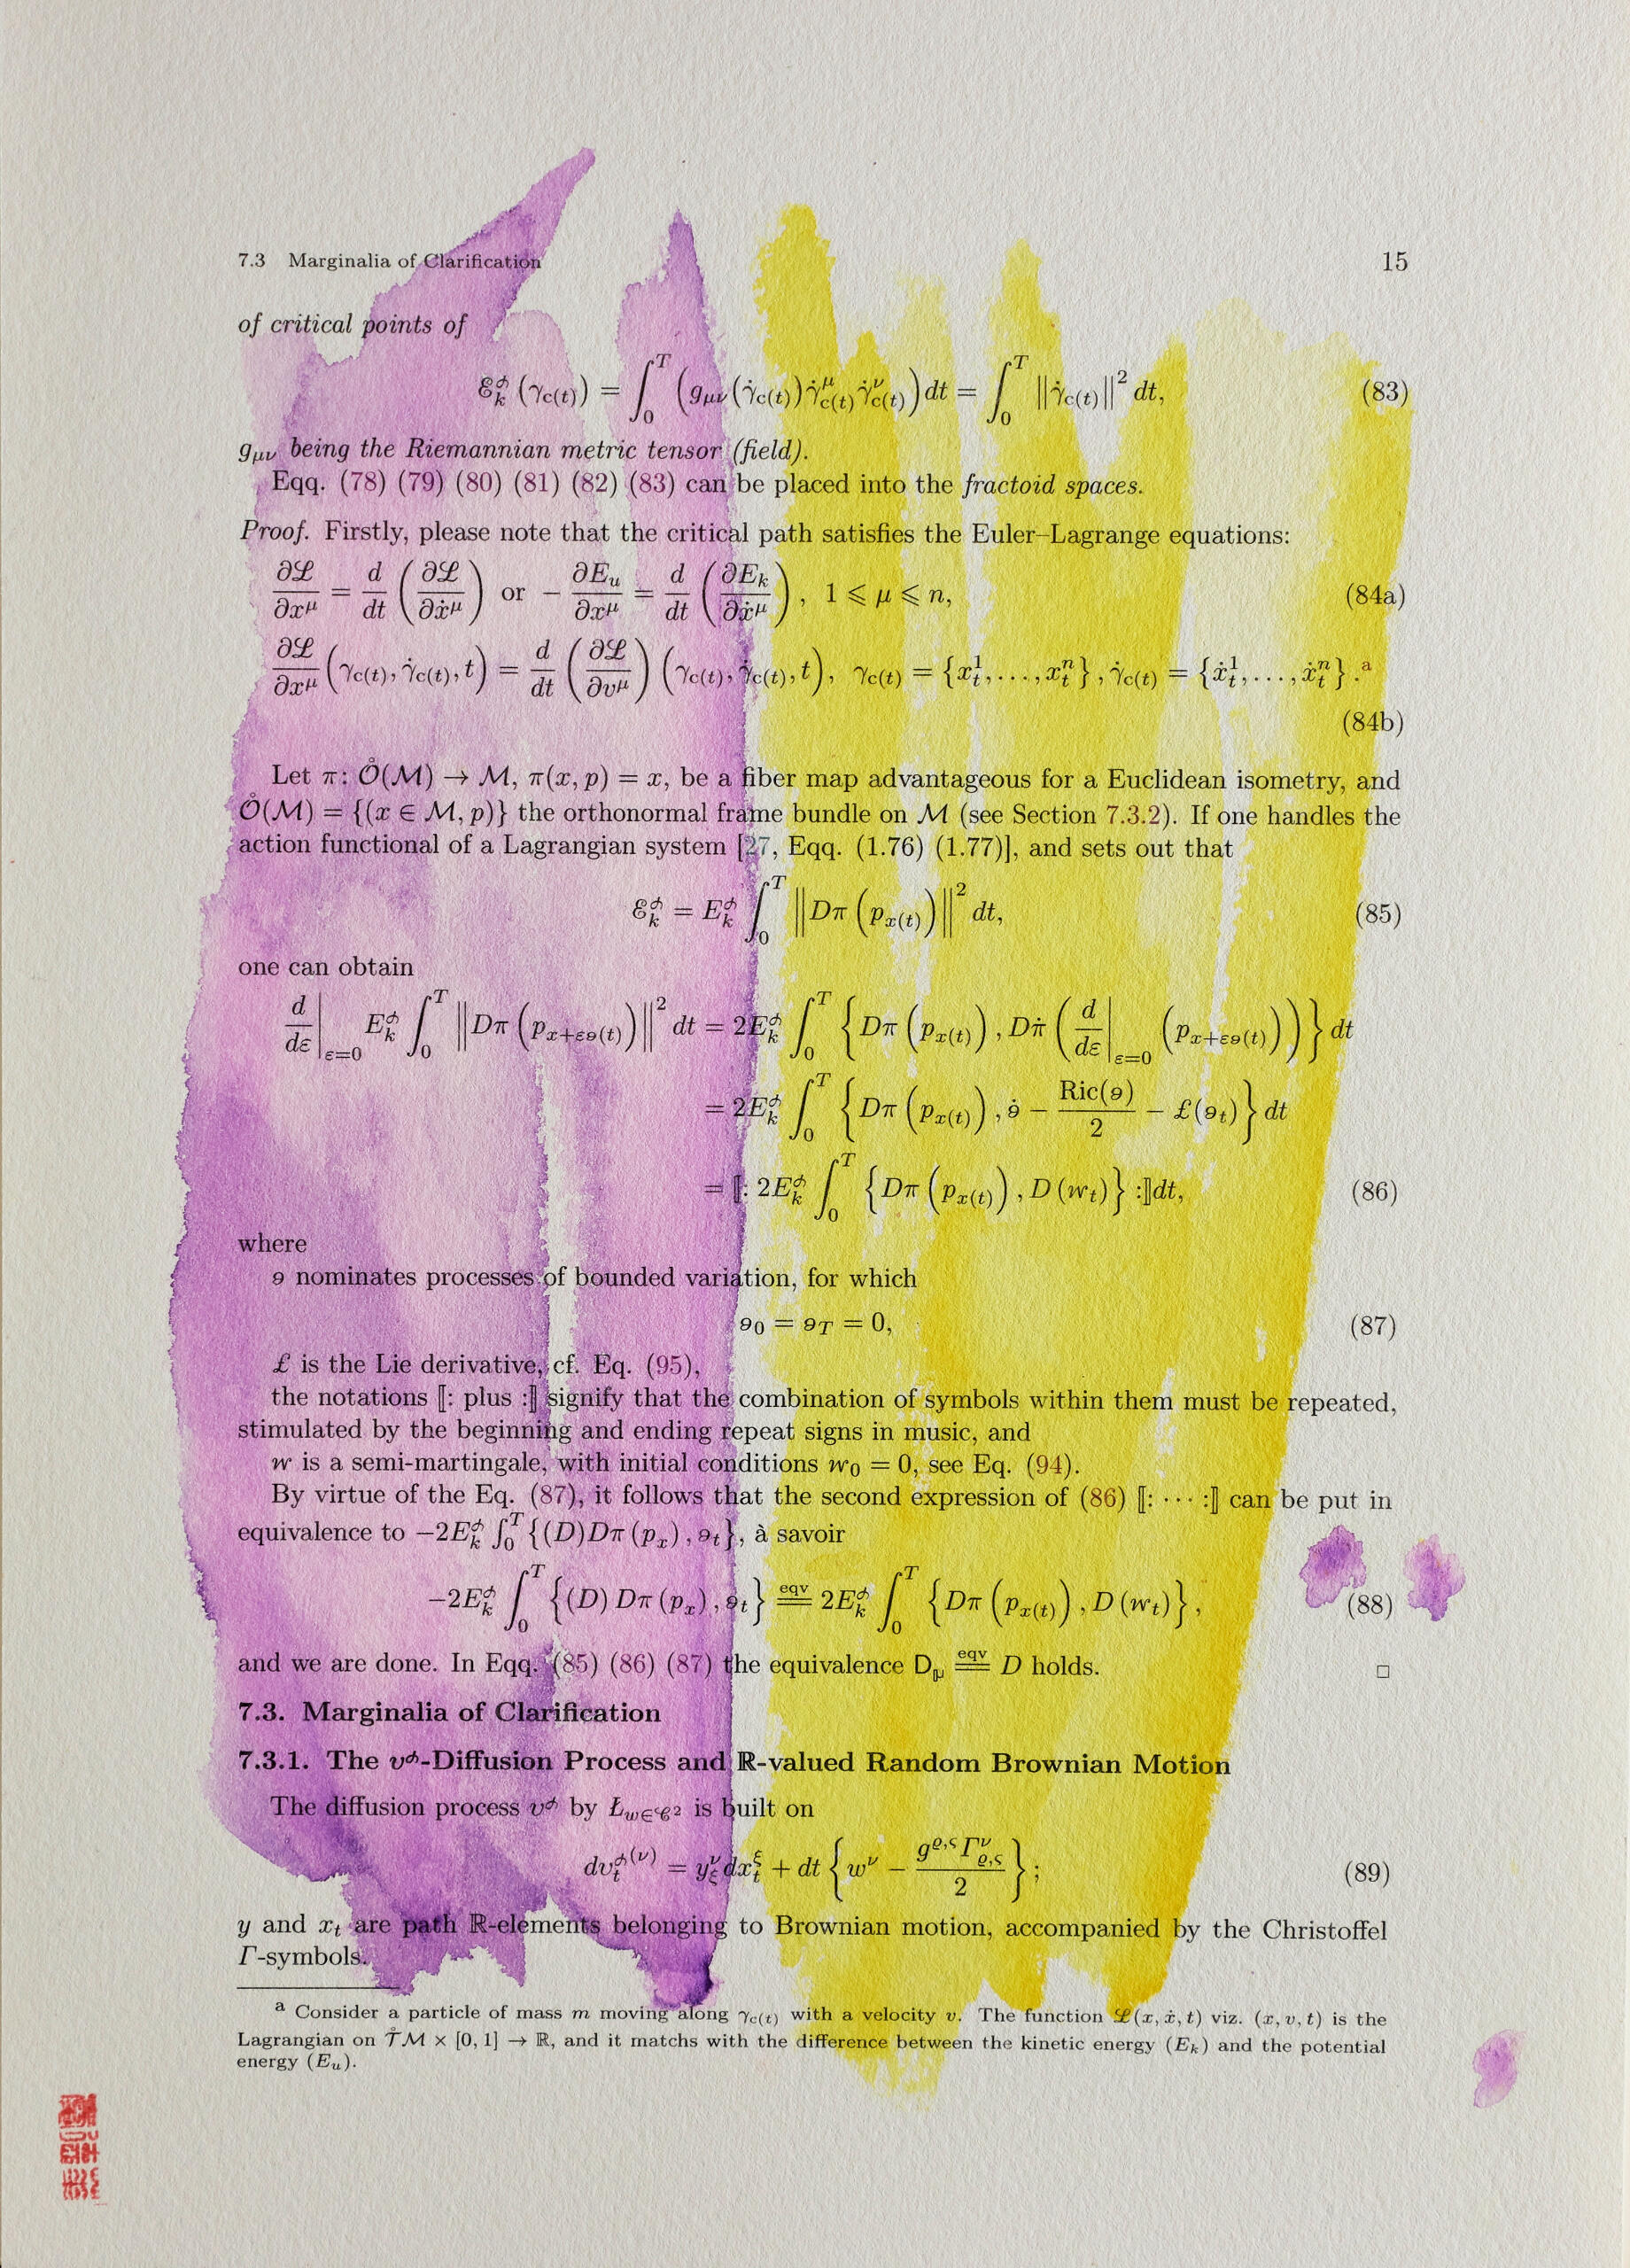 7.3 Marginalia of Clarification 15
of critical points of
ℰ_k^𝜙 (γ_c(t)) = ∫_0^T (g_μν(γ̇_c(t)) γ̇^μ_c(t) γ̇^ν_c(t)) dt = ∫_0^T ‖γ̇_c(t)‖² dt, (83)
g_μν being the Riemannian metric tensor (field).
Eqq. (78) (79) (80) (81) (82) (83) can be placed into the fractoid spaces.
Proof. Firstly, please note that the critical path satisfies the Euler–Lagrange equations:
∂ℒ/∂x^μ = d/dt (∂ℒ/∂ẋ^μ) or − ∂E_u/∂x^μ = d/dt (∂E_k/∂ẋ^μ), 1 ⩽ μ ⩽ n, (84a)
∂ℒ/∂x^μ (γ_c(t), γ̇_c(t), t) = d/dt (∂ℒ/∂v^μ) (γ_c(t), γ̇_c(t), t), γ_c(t) = {x_t^1, . . . , x_t^n}, γ̇_c(t) = {ẋ_t^1, . . . , ẋ_t^n}.^a
(84b)
Let π: 𝒪̊(ℳ) → ℳ, π(x, p) = x, be a fiber map advantageous for a Euclidean isometry, and
𝒪̊(ℳ) = {(x ∈ ℳ, p)} the orthonormal frame bundle on ℳ (see Section 7.3.2). If one handles the
action functional of a Lagrangian system [27, Eqq. (1.76) (1.77)], and sets out that
ℰ_k^𝜙 = E_k^𝜙 ∫_0^T ‖Dπ (p_x(t))‖² dt, (85)
one can obtain
d/dε |_ε=0 E_k^𝜙 ∫_0^T ‖Dπ (p_x+εɘ(t))‖² dt = 2E_k^𝜙 ∫_0^T {Dπ (p_x(t)), Dπ̇ (d/dε |_ε=0 (p_x+εɘ(t)))} dt
= 2E_k^𝜙 ∫_0^T {Dπ (p_x(t)), ɘ̇ − Ric(ɘ)/2 − £(ɘ_t)} dt
= ⟦: 2E_k^𝜙 ∫_0^T {Dπ (p_x(t)), D (w_t)} :⟧dt, (86)
where
ɘ nominates processes of bounded variation, for which
ɘ_0 = ɘ_T = 0, (87)
£ is the Lie derivative, cf. Eq. (95),
the notations ⟦: plus :⟧ signify that the combination of symbols within them must be repeated,
stimulated by the beginning and ending repeat signs in music, and
w is a semi-martingale, with initial conditions w_0 = 0, see Eq. (94).
By virtue of the Eq. (87), it follows that the second expression of (86) ⟦: · · · :⟧ can be put in
equivalence to −2E_k^𝜙 ∫_0^T {(D)Dπ (p_x), ɘ_t}, à savoir
−2E_k^𝜙 ∫_0^T {(D) Dπ (p_x), ɘ_t} ≝(eqv) 2E_k^𝜙 ∫_0^T {Dπ (p_x(t)), D (w_t)}, (88)
and we are done. In Eqq. (85) (86) (87) the equivalence D_μ ==(eqv) D holds. □
7.3. Marginalia of Clarification
7.3.1. The υ^𝜙-Diffusion Process and ℝ-valued Random Brownian Motion
The diffusion process υ^𝜙 by Ł_w∈𝒞² is built on
dυ_t^𝜙(ν) = y_ξ^ν dx_t^ξ + dt {w^ν − g^ϱ,ς Γ^ν_ϱ,ς / 2}; (89)
y and x_t are path ℝ-elements belonging to Brownian motion, accompanied by the Christoffel
Γ-symbols.
a Consider a particle of mass m moving along γ_c(t) with a velocity v. The function ℒ(x, ẋ, t) viz. (x, v, t) is the
Lagrangian on 𝒯̊ℳ × [0, 1] → ℝ, and it matchs with the difference between the kinetic energy (E_k) and the potential
energy (E_u).